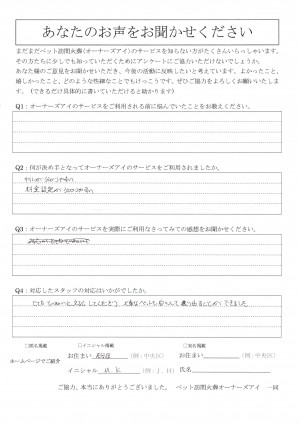 あなたのお声をお聞かせください
まだまだペット訪問火葬(オーナーズアイ)のサービスを知らない方がたくさんいらっしゃいます。
その方たちに少しでも知っていただくためにアンケートにご協力いただけないでしょうか。
あなた様のご意見をお聞かせいただき、今後の活動に反映したいと考えています。よかったこと、
嬉しかったこと、どのような些細なことでもけっこうです。ぜひご協力をよろしくお願いいたしま
す。(できるだけ具体的に書いていただけると助かります)
Q1:オーナーズアイのサービスをご利用される前に悩んでいたことをお教えください。
Q2:何が決め手となってオーナーズアイのサービスをご利用されましたか。
料金設定が
Q3:オーナーズアイのサービスを実際にご利用なさってみての感想をお聞かせください。
Q4:対応したスタッフの対応はいかがでしたか。
とても
できました
□匿名掲載 □イニシャル掲載 □実名掲載
ホームページでご紹介
お住まい (例:中央区) お住まい (例:中央区)
イニシャル M.K (例:J.H) 氏名
ご協力、本当にありがとうございました。 ペット訪問火葬オーナーズアイ 一同